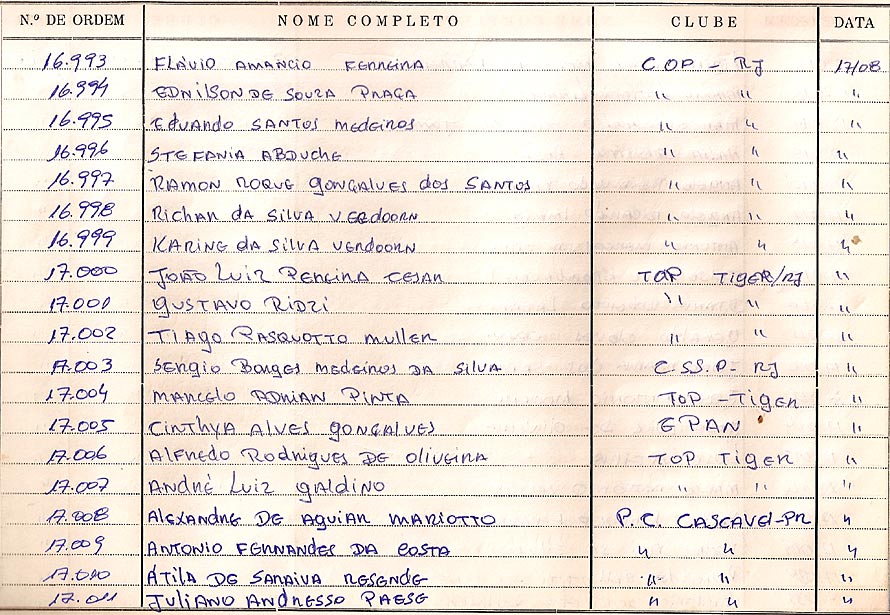 N.º DE ORDEM NOME COMPLETO CLUBE DATA
16.993 FLÁVIO AMANCIO FERREIRA COP - RJ 17/08
16.994 EDNILSON DE SOUZA PRAÇA " " "
16.995 EDUARDO SANTOS MEDEIROS " " "
16.996 STEFANIA ABOUCHE " " "
16.997 RAMON ROQUE GONÇALVES DOS SANTOS " " "
16.998 RICHAR DA SILVA VERDOORN " " "
16.999 KARINE DA SILVA VERDOORN " " "
17.000 JOÃO LUIZ PEREIRA CESAR TOP TIGER/RJ "
17.001 GUSTAVO RIDZI " " "
17.002 TIAGO PASQUOTTO MULLER " " "
17.003 SERGIO BORGES MEDEIROS DA SILVA C.SS.P- RJ "
17.004 MARCELO ADRIAN PINTA TOP - TIGER "
17.005 CINTHYA ALVES GONÇALVES EPAN "
17.006 ALFREDO RODRIGUES DE OLIVEIRA TOP TIGER "
17.007 ANDRÉ LUIZ GALDINO " " "
17.008 ALEXANDRE DE AGUIAR MARIOTTO P.C. CASCAVEL-PR "
17.009 ANTONIO FERNANDES DA COSTA " " "
17.010 ÁTILA DE SARAIVA RESENDE " " "
17.011 JULIANO ANDRESSO PAESE " " "